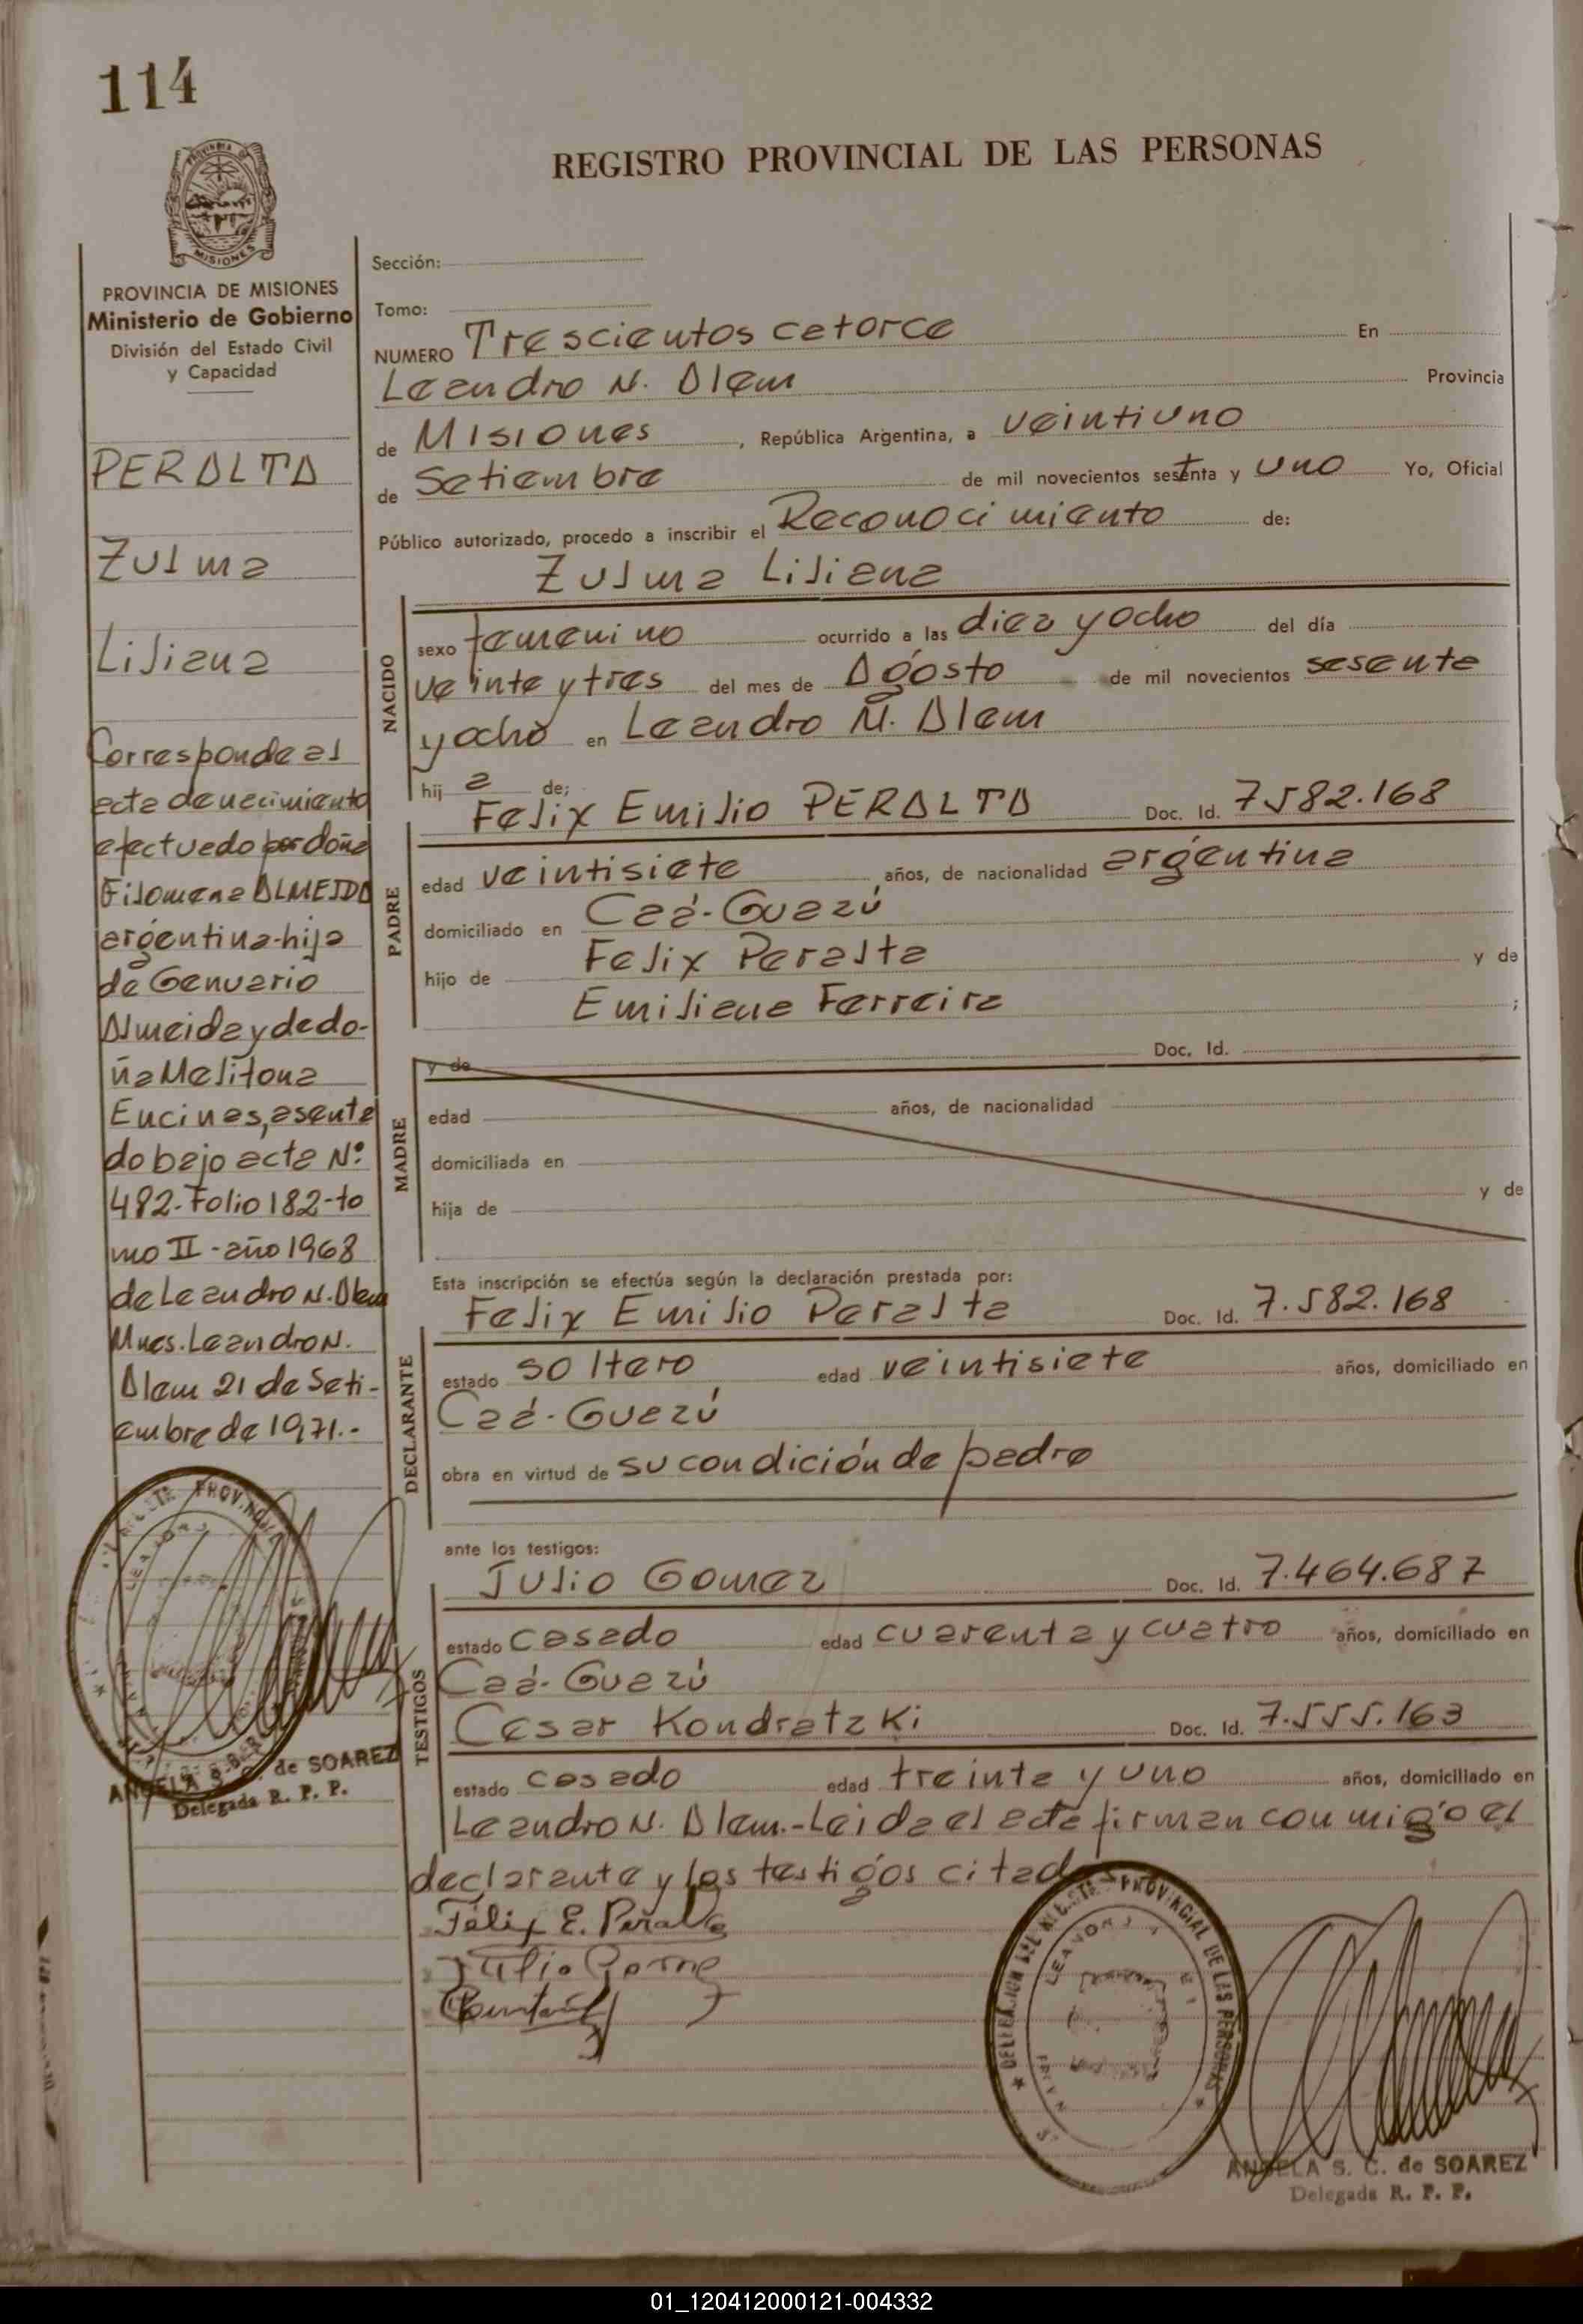 114
REGISTRO PROVINCIAL DE LAS PERSONAS
PROVINCIA DE MISIONES
Ministerio de Gobierno
División del Estado Civil
y Capacidad
PERALTA
Zulma
Liliana
Corresponde al
acta de nacimiento
efectuado por doña
Filomena ALMEIDA
argentina-hija
de Genuario
Almeida y de do-
ña Melitona
Encinas, asenta
do bajo acta Nº
482-Folio 182-to
mo II - año 1968
de Leandro N. Alem
Mnes. Leandro N.
Alem 21 de Seti-
embre de 1971.-
ANGELA S. C. de SOAREZ
Delegada R. P. P.
Sección:
Tomo:
NUMERO Trescientos catorce En
Leandro N. Alem Provincia
de Misiones, República Argentina, a veintiuno
de Setiembre de mil novecientos setenta y uno Yo, Oficial
Público autorizado, procedo a inscribir el Reconocimiento de:
Zulma Liliana
NACIDO
sexo femenino ocurrido a las diez y ocho del día
veinte y tres del mes de Agosto de mil novecientos sesenta
y ocho en Leandro N. Alem
hij a de:
Felix Emilio PERALTA Doc. Id. 7582.168
PADRE
edad veintisiete años, de nacionalidad argentina
domiciliado en Caá-Guazú
hijo de Felix Peralta y de
Emiliana Ferreira ;
y de Doc. Id.
MADRE
edad años, de nacionalidad
domiciliada en
hija de y de
Esta inscripción se efectúa según la declaración prestada por:
Felix Emilio Peralta Doc. Id. 7.582.168
DECLARANTE
estado soltero edad veintisiete años, domiciliado en
Caá-Guazú
obra en virtud de su condición de padre
ante los testigos:
Julio Gomez Doc. Id. 7.464.687
TESTIGOS
estado casado edad cuarenta y cuatro años, domiciliado en
Caá-Guazú
Cesar Kondratzki Doc. Id. 7.555.163
estado casado edad treinta y uno años, domiciliado en
Leandro N. Alem.-Leida el acta firman conmigo el
declarante y los testigos citad
Félix E. Peralta
Julio Gome
DELEGACION DEL REGISTRO PROVINCIAL DE LAS PERSONAS
ANGELA S. C. de SOAREZ
Delegada R. P. P.
01_120412000121-004332